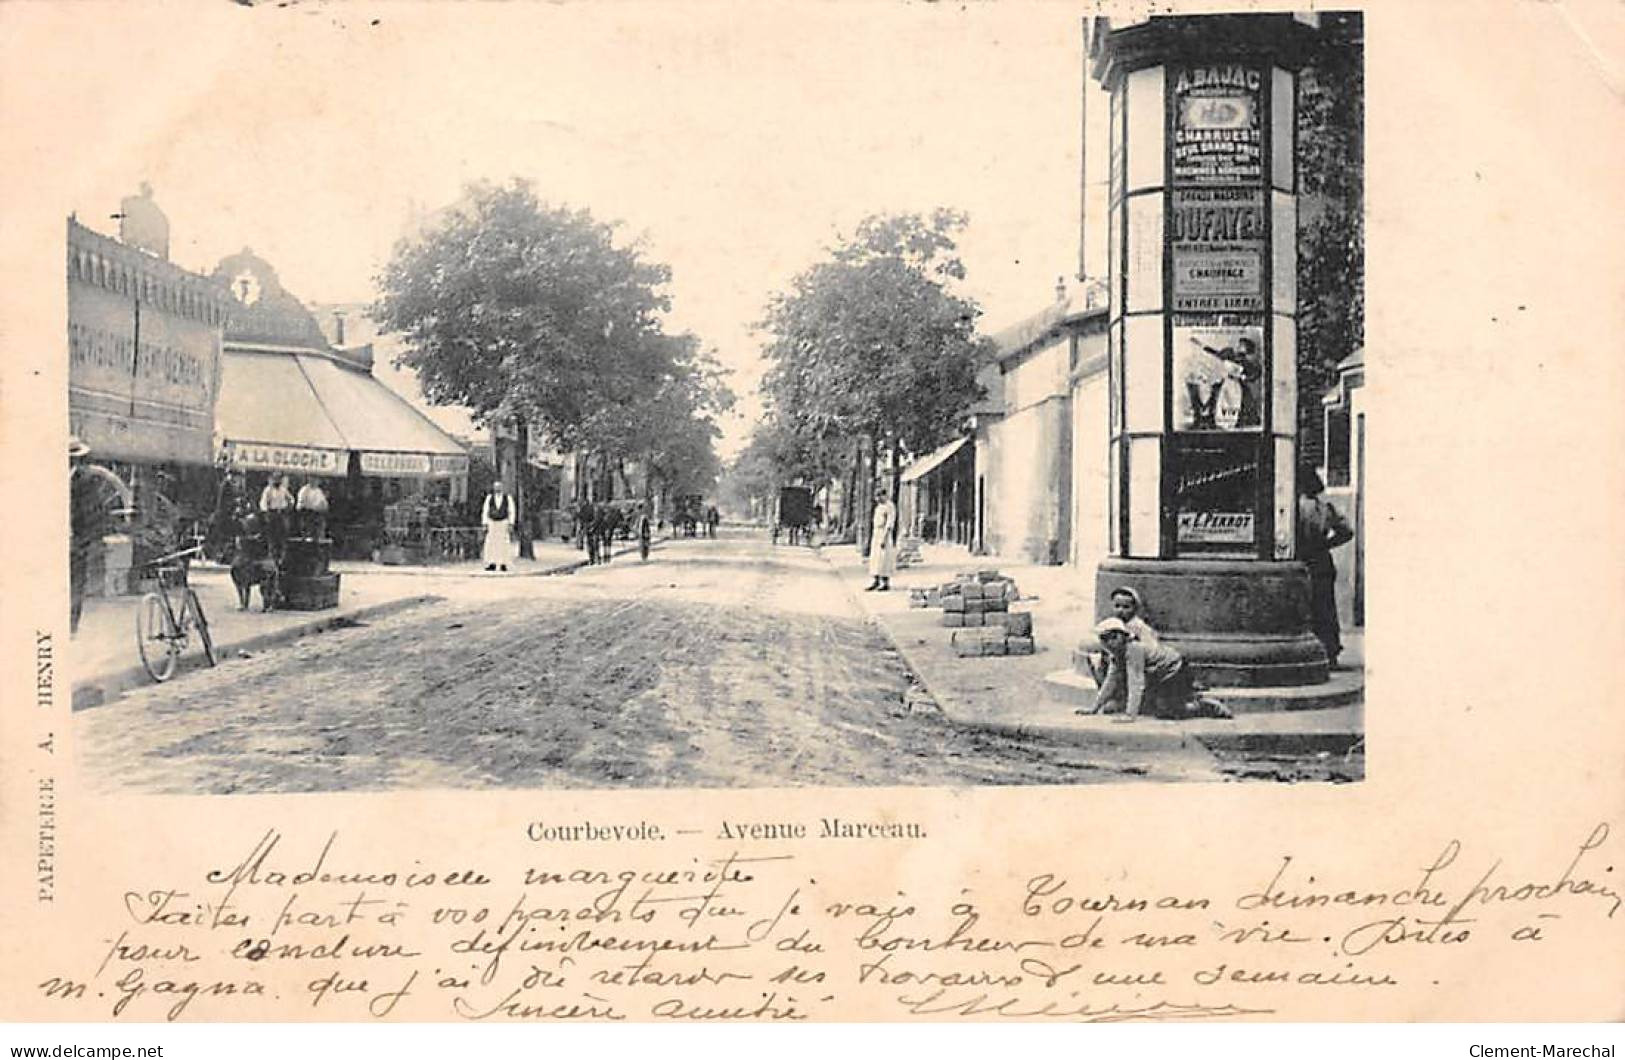 A. BAJAC
CHARRUES!!
SEUL GRAND PRIX
MACHINES AGRICOLES
DUFAYEL
CHAUFFAGE
ENTRÉE LIBRE
L. PERROT
A LA CLOCHE
PAPETERIE A. HENRY
Courbevoie. — Avenue Marceau.
Mademoiselle marguerite
Faites part à vos parents que je vais à Tournan dimanche prochain
pour conclure définitivement du bonheur de ma vie. Dites à
m. Gagna que j'ai dû retarder ses travaux d'une semaine.
Sincère amitié
delcampe.net
Clement-Marechal